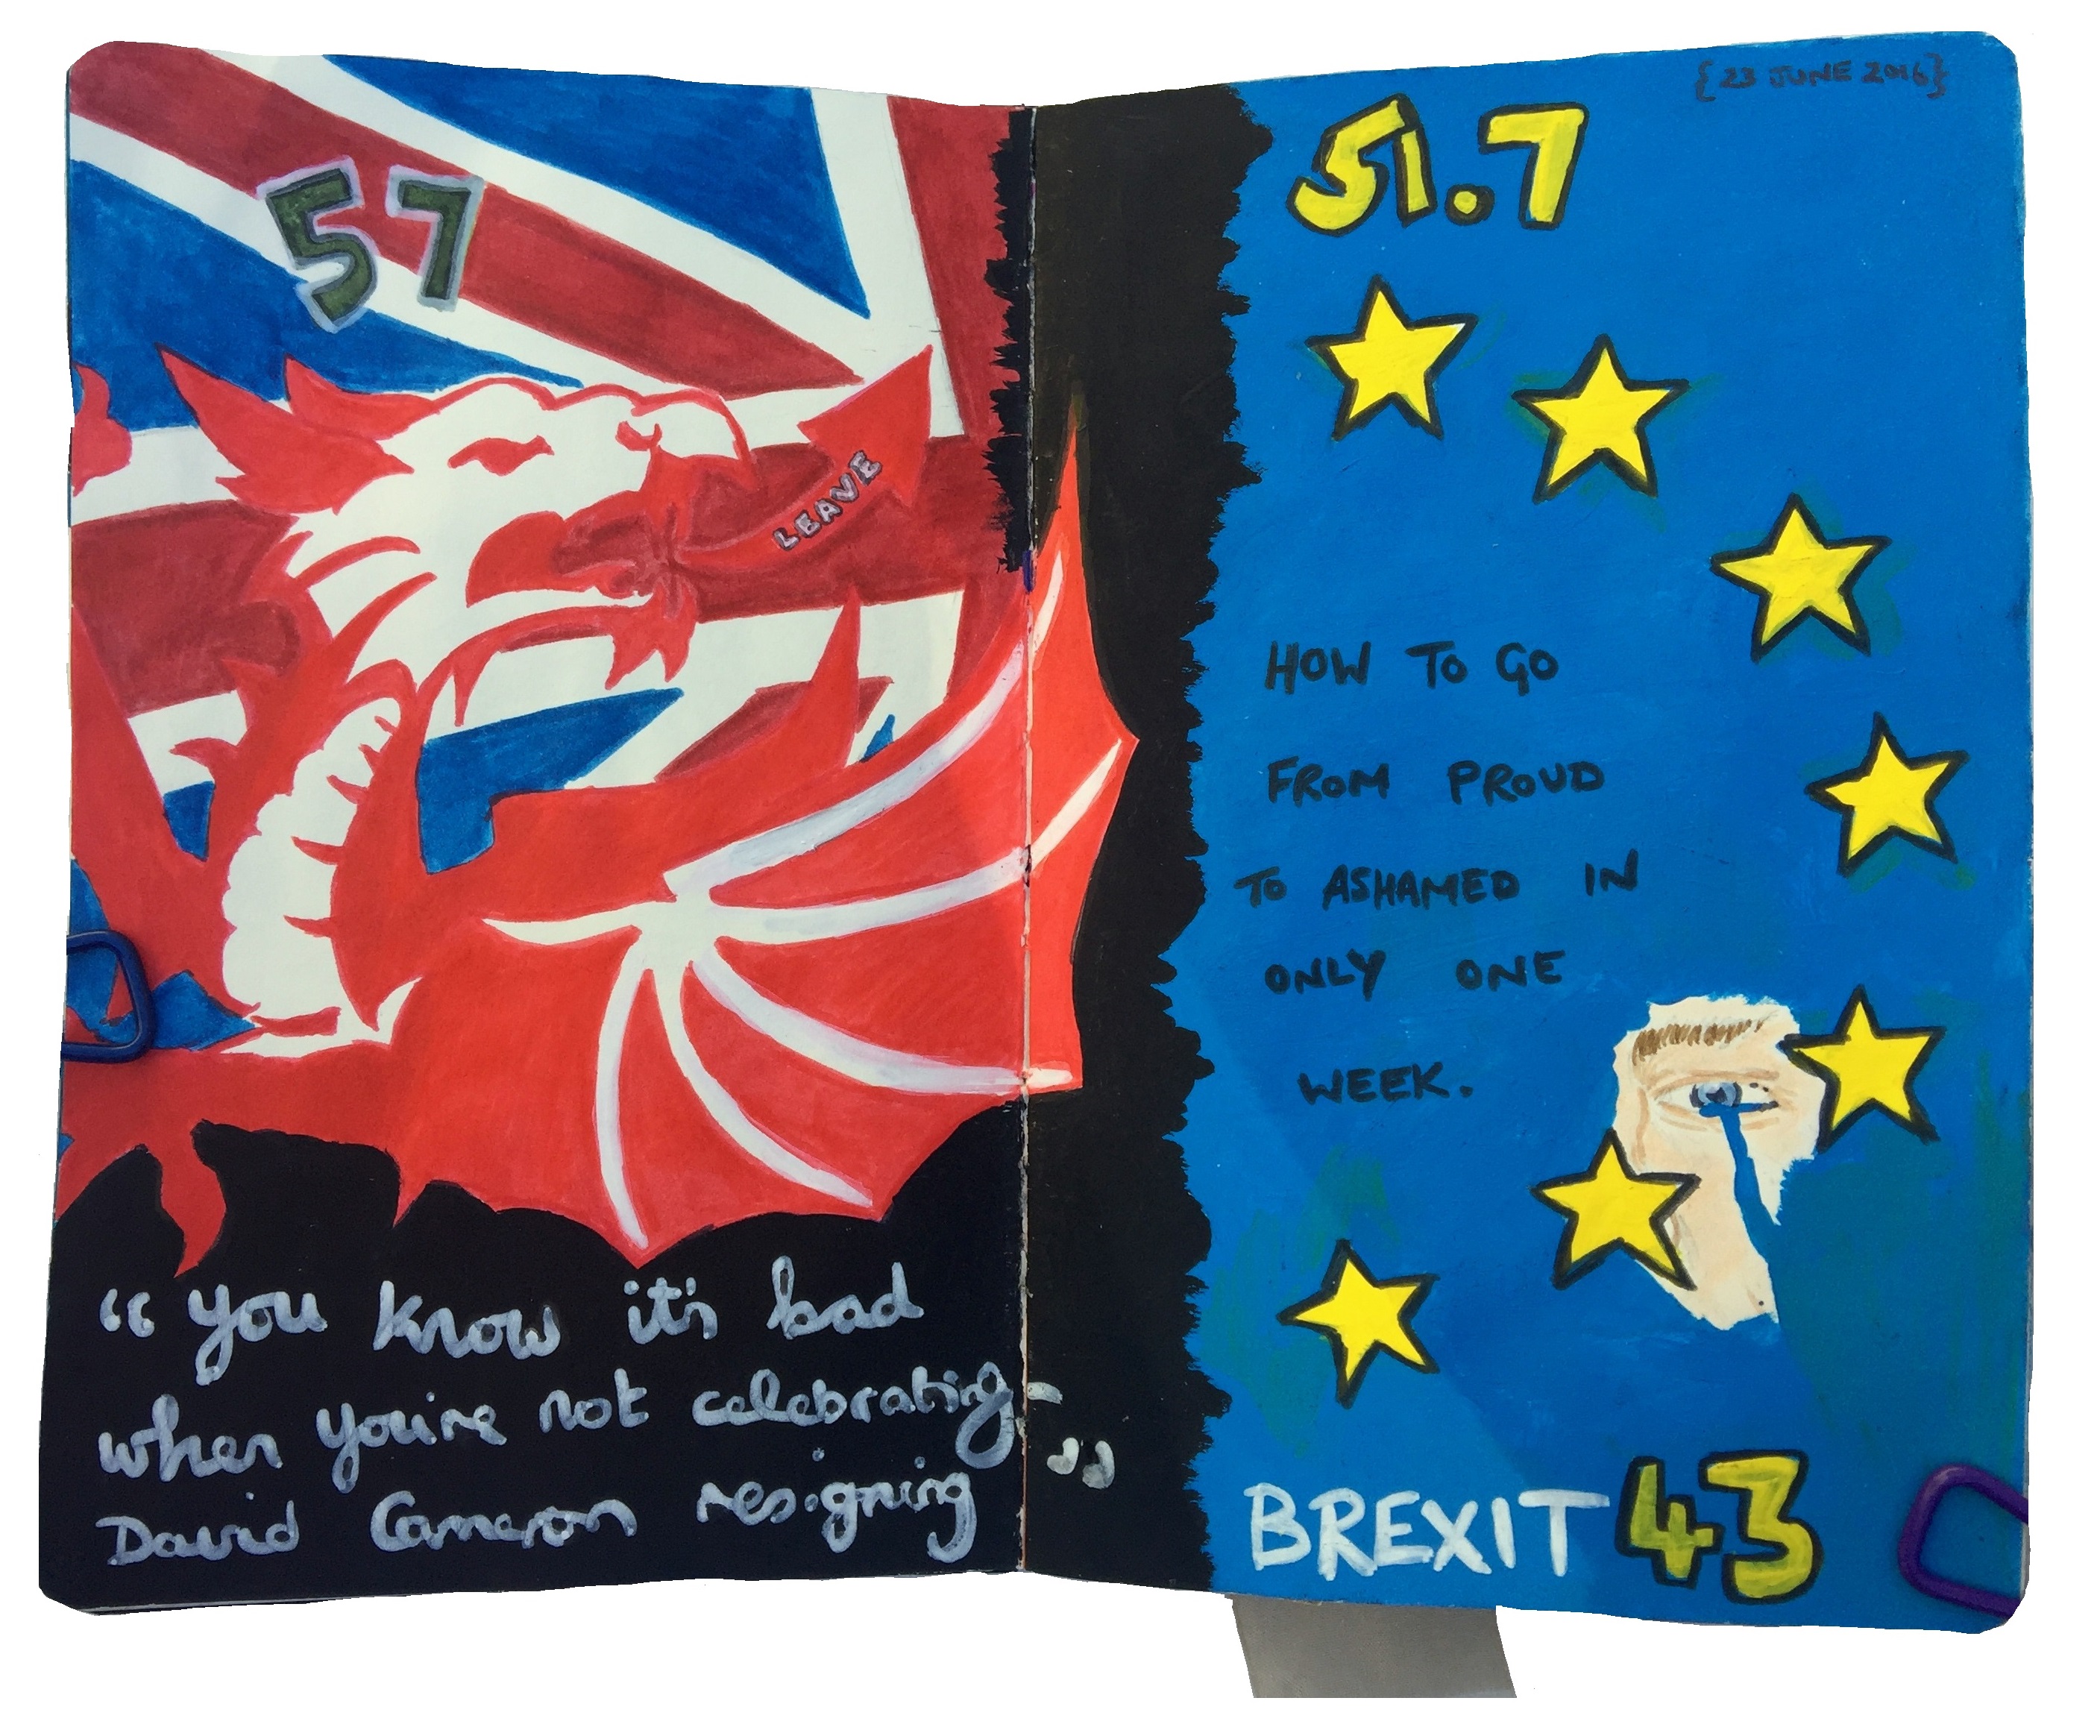 57
LEAVE
“ you know it's bad
when you're not celebrating -
David Cameron resigning ”
{23 JUNE 2016}
51.7
HOW TO GO
FROM PROUD
TO ASHAMED IN
ONLY ONE
WEEK.
BREXIT 43